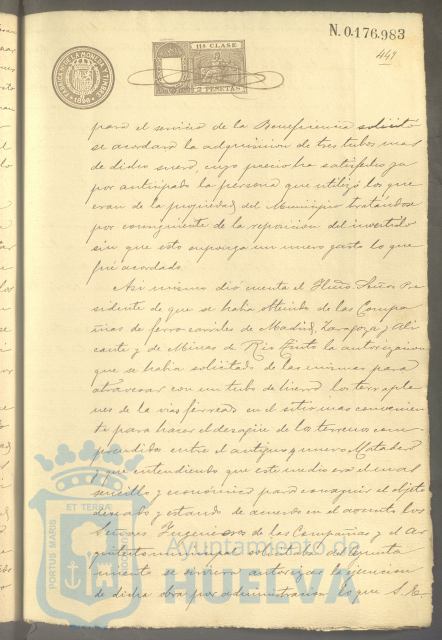 N. 0.176.983
449
FABRICA NACIONAL DE LA MONEDA Y TIMBRE
1896
11ª CLASE
2 PESETAS
para el servicio de la Beneficencia solicitó
se acordara la adquisicion de tres tubos mas
de dicho suero, cuyo precio ha satisfecho ya
por anticipado la persona que utilizó los que
eran de la propiedad del Municipio tratándose
por consiguiente de la reposicion del invertido
sin que esto suponga un nuevo gasto lo que
fué acordado.
Asi mismo dió cuenta el Iltmo Señor Pre
sidente de que se habia obtenido de las Compa
ñias de ferro-carriles de Madrid, Zaragoza y Ali
cante y de Minas de Rio Tinto la autorizacion
que se habia solicitado de las mismas para
atravesar con un tubo de hierro los terraple
nes de la vias ferreas en el sitio mas convenien
te para hacer el desagüe de los terrenos com
prendidos entre el antiguo y nuevo Matadero
y que entendiendo que este medio era el mas
sencillo y económico para conseguir el objeto
deseado y estando de acuerdo en el asunto los
Señores Ingenieros de las Compañias y el Ar
quitecto municipal solicitaba del Ayunta
miento se sirviera autorizar la ejecucion
de dicha obra por administracion lo que S. E.
PORTUS MARIS
ET TERRAE
Ayuntamiento de
HUELVA